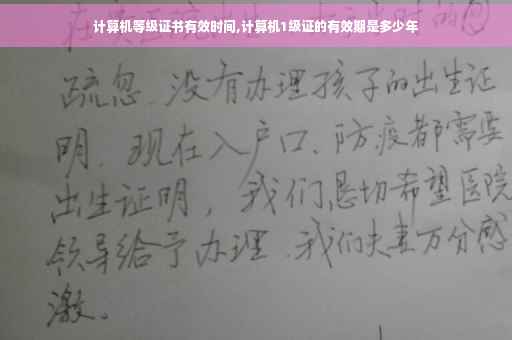 计算机等级证书有效时间,计算机1级证的有效期是多少年
疏忽、没有办理孩子的出生证
明、现在入户口、防疫都需要
出生证明，我们恳切希望医院
领导给予办理、我们夫妻万分感
激。